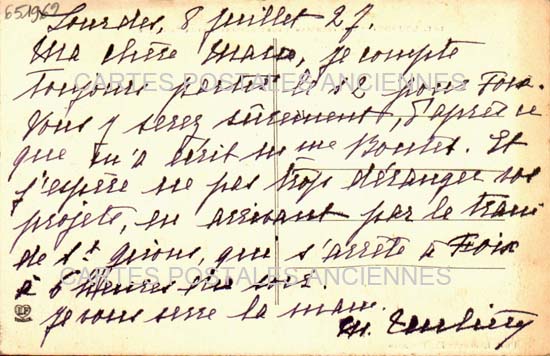 651969
Lourdes, 8 juillet 27.
Ma chère , je compte
CARTES POSTALES ANCIENNES
toujours partir le 12 pour Foix.
Vous y serez sûrement, d'après ce
que m'a écrit Mme . Et
j'espère ne pas trop déranger vos
projets, en arrivant par le train
de St Girons, qui s'arrête à Foix
CARTES POSTALES ANCIENNES
à 5 heures du soir.
Je vous serre la main.
M.